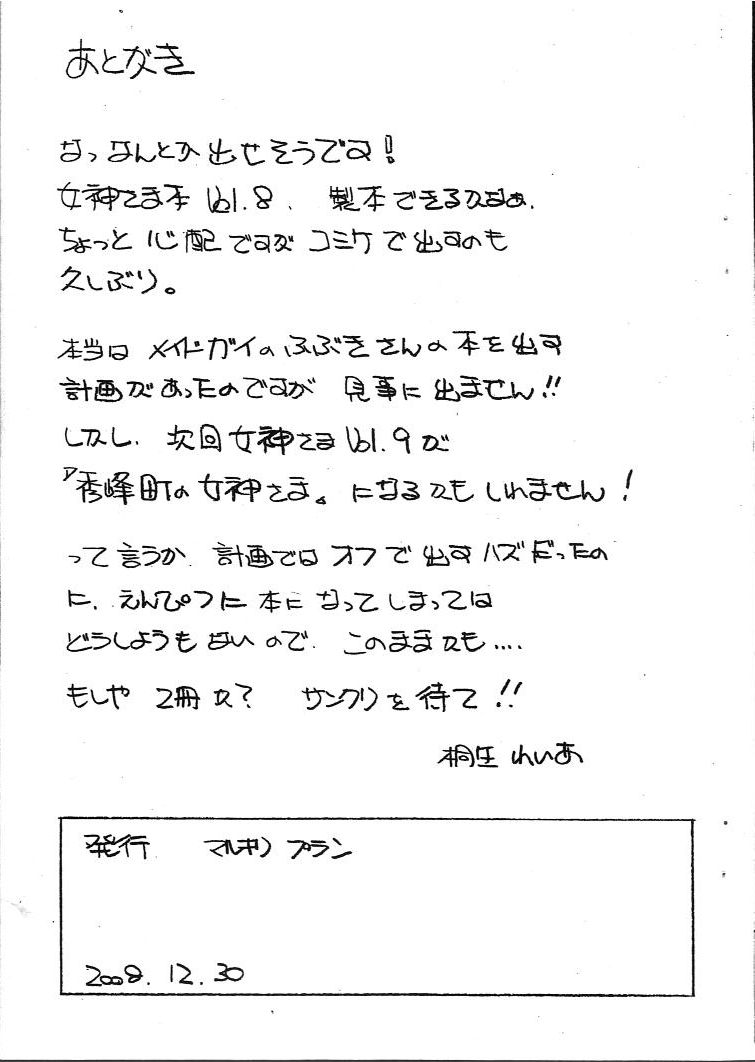 あとがき
なっなんとか出せそうです!
女神さま本 Vol.8、製本できるかなぁ、
ちょっと心配ですが コミケで出すのも
久しぶり。
本当は メイドガイのふぶきさんの本を出す
計画があったのですが 見事に出ません!!
しかし、次回女神さま Vol.9が
『秀峰町の女神さま』になるかもしれません!
って言うか 計画ではオフで出すハズだったの
に、えんぴつに本になってしまっては
どうしようもないので、このままかも....
もしや 2冊か? サンクリを待て!!
桐生れいあ
発行 マルキリプラン
2008.12.30